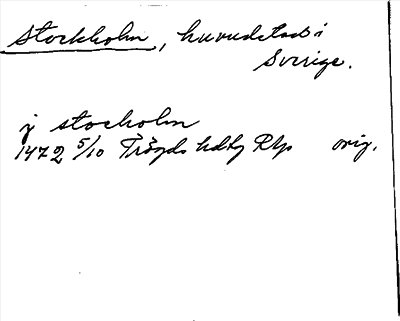 Stockholm, huvudstad i
Sverige.
j stocholm
1472 5/10 Trögds hdbg Rp orig.